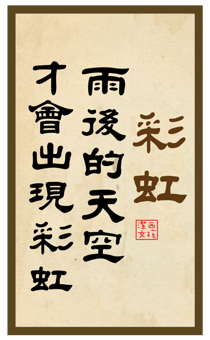 彩虹
雨後的天空
才會出現彩虹